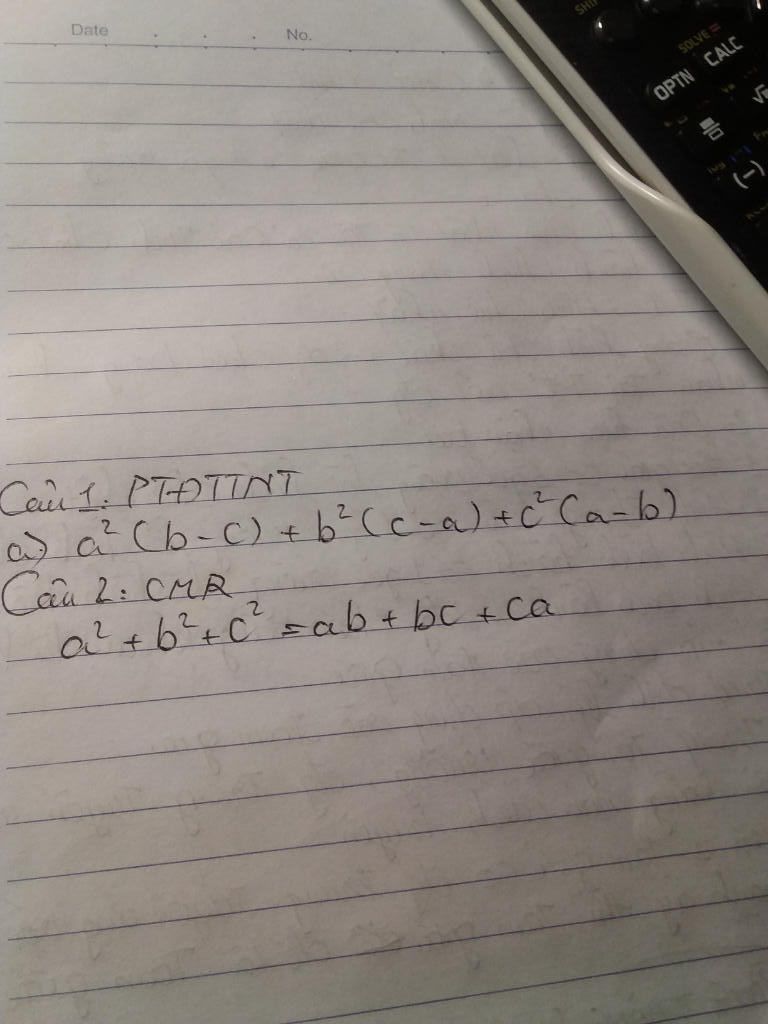 Date . . . No.
SHIFT
SOLVE =
OPTN CALC
(-)
Câu 1: PTĐTTNT
a) a² (b - c) + b² (c - a) + c² (a - b)
Câu 2: CMR
a² + b² + c² = ab + bc + ca